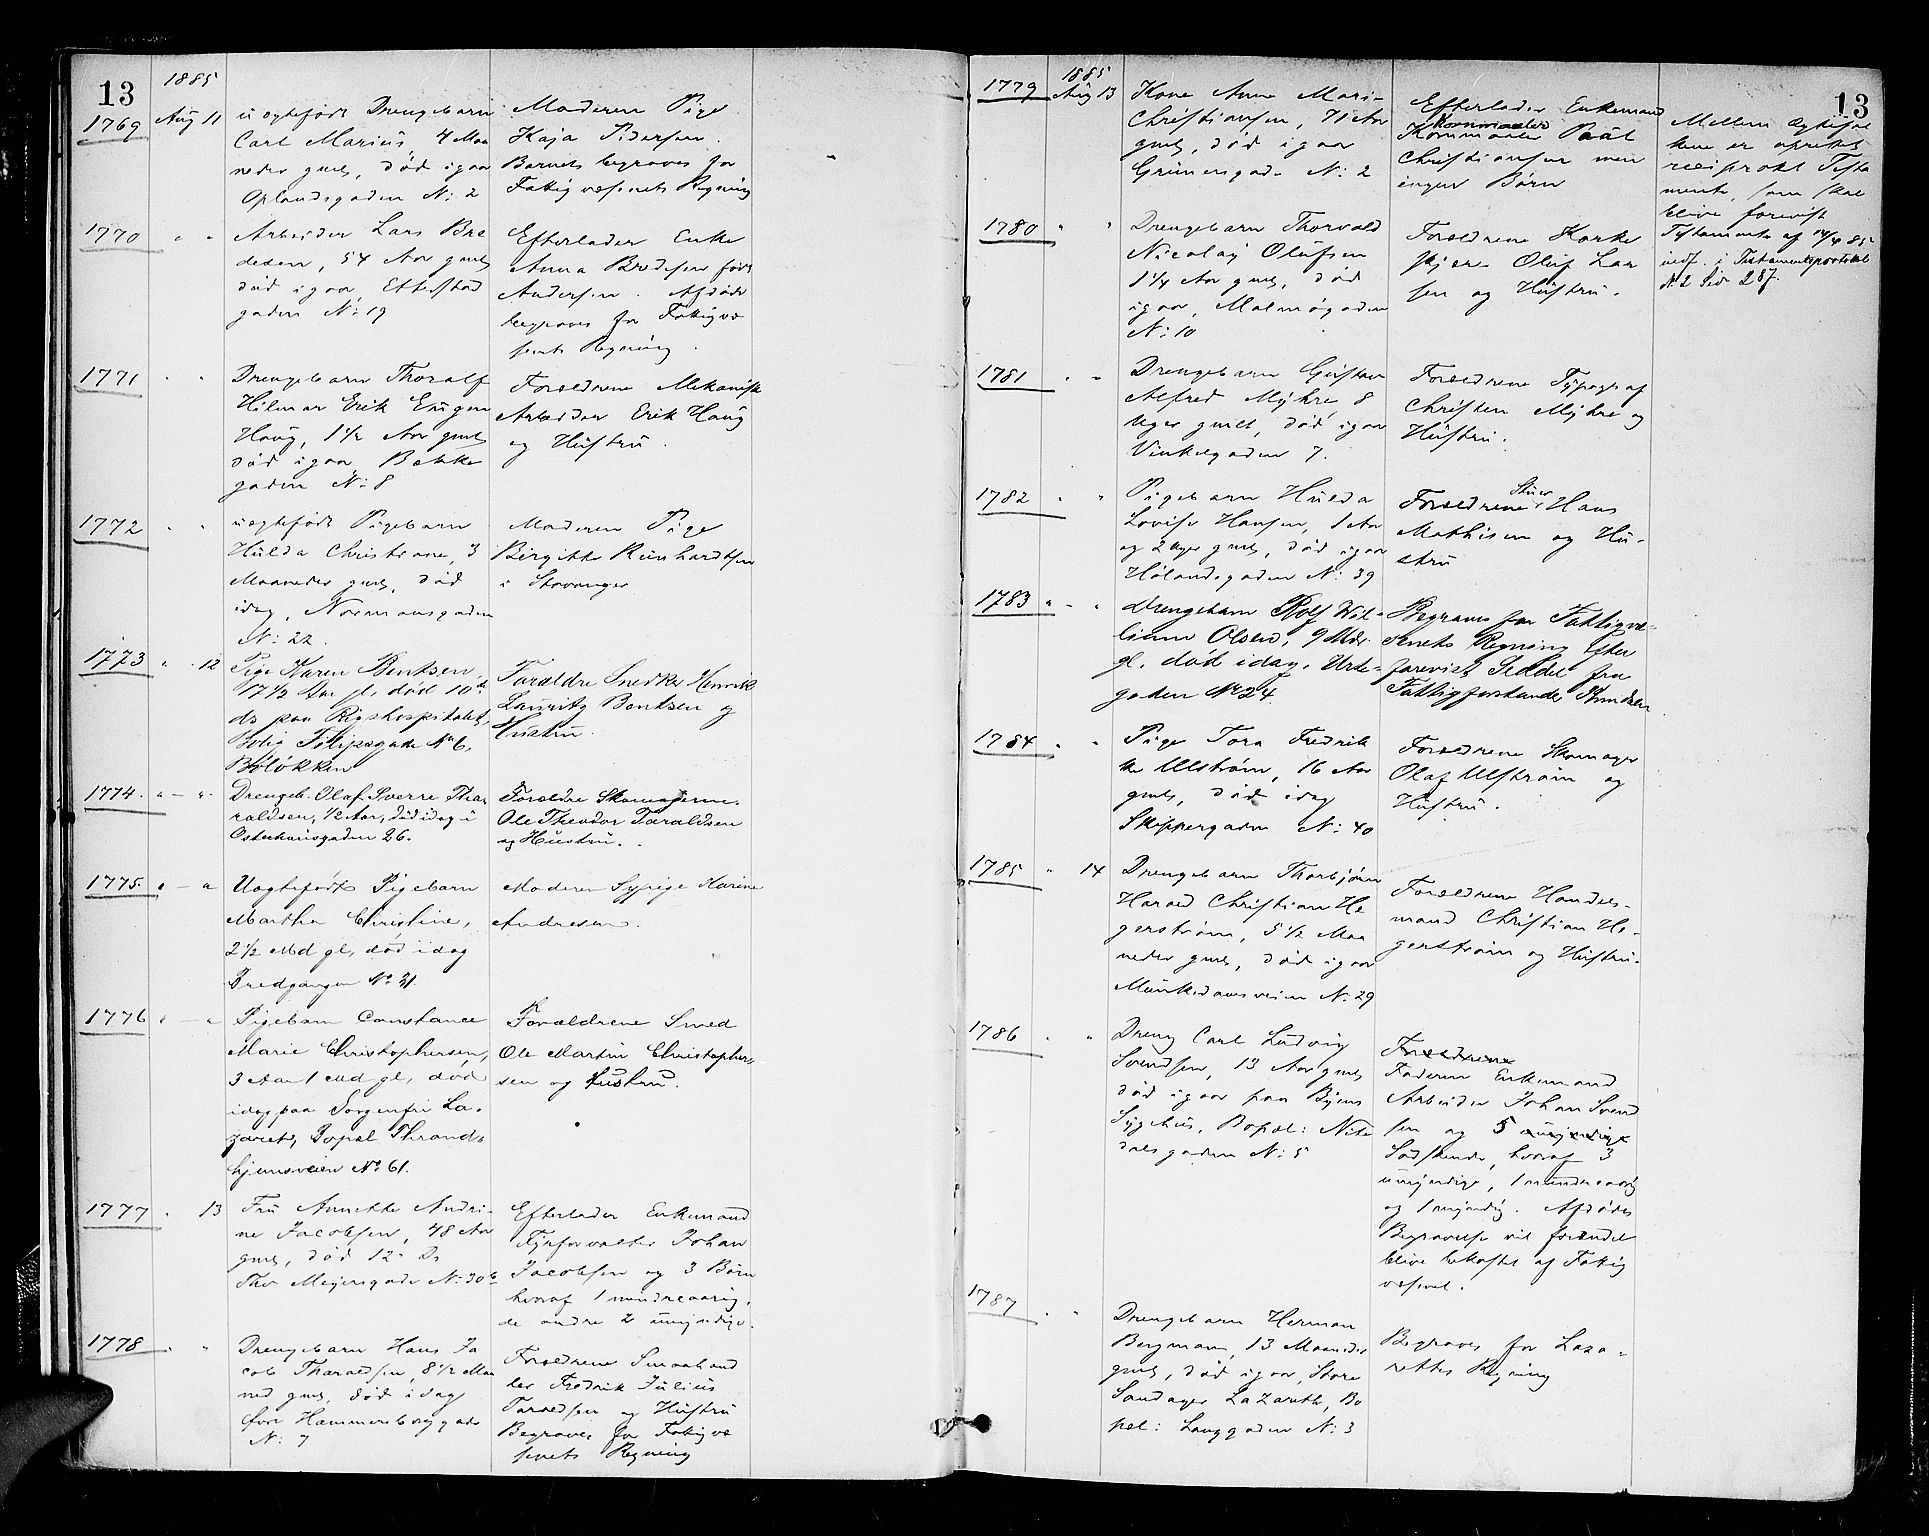 13
1885
1769
Aug 11
uægtefødt Drengebarn
Carl Marius, 4 Maa
neder gml, død igaar
Oplandsgaden N: 2
Moderen Pige
Kaja Pedersen.
Barnet begraves for
Fattigvæsenets Regning
1770 " "
Arbeider Lars Bre
desen, 54 Aar gml
død igaar, Ettestad
gaden N: 19
Efterlader Enke
Anna Bredesen født
Andersen. Afdøde
begraves for Fattigvæ
senets Regning.
1771 " "
Drengebarn Thoralf
Hilmar Erik Eugen
Haug, 1 1/2 Aar gml
død igaar, Bakke
gaden N: 8
Forældrene Mekanisk
Arbeider Erik Haug
og Hustru.
1772 " "
uægtefødt Pigebarn
Hulda Christiane, 3
Maaneder gml, død
idag, Normansgaden
N: 22.
Moderen Pige
Birgitte Reinhardtsen
i Stavanger
1773 " 12
Pige Karen Bentsen,
17 1/2 Aar gl. død 10de
ds paa Rigshospitalet,
Bolig Filipsgade No 6.
Bøløkken
Forældre Snedker Henrik
Lauritz Bentsen og
Hustru.
1774. " — "
Drengeb. Olaf Sverre Tha
raldsen, 1/2 Aar, død idag i
Osterhausgaden 26.
Forældre Skomagerm.
Ole Theodor Taraldsen
og Hustru.
1775. " — "
Uægtefødt Pigebarn
Martha Christine,
2 1/2 Md gl, død idag
Bredgangen No 31.
Moderen Sypige Karine
Andresen.
1776 " — "
Pigebarn Constance
Marie Christophersen,
3 Aar 1 Md gl, død
idag paa Sorgenfri La-
zaret, Bopæl Thrond-
hjemsveien No 61.
Forældrene Smed
Ole Martin Christopher-
sen og Hustru.
1777 " 13
Fru Annette Andri-
ne Jacobsen, 48 Aar
gml, død 12- Ds
Thv Meyersgade N: 30b
Efterlader Enkemand
Fyrforvalter Johan
Jacobsen og 3 Børn
hvoraf 1 mindreaarig,
de andre 2 umyndige.
1778 " "
Drengebarn Hans Ja
cob Tharaldsen, 8 1/2 Maa
ned gml, død idag
Hammersborggade
N: 7
Forældrene Smaahand
ler Fredrik Julius
Taraldsen og Hustru
Begraves for Fattigvæ
senets Regning
13
1885
1779 Aug 13
Kone Anne Mari-
Christiansen, 71 Aar
gml, død igaar
Grünersgade N: 2
Efterlader Enkemand
Kornmaaler
Kornmaaler Paul
Christiansen men
ingen Børn
Mellem Ægtefol
kene er oprettet
reciprokt Testa
mente, som skal
blive forevist
Testamente af 14/4 85
indf. i Testamentsprotokol
N 2 Side 287.
1780 " "
Drengebarn Thorvald
Nicolay Olufsen
1 1/4 Aar gml, død
igaar, Malmøgaden
N: 10
Forældrene Korke
skjærer Oluf Lar
sen og Hustru.
1781 " "
Drengebarn Gustav
Alfred Myhre 8
Uger gml, død igaar
Vinkelgaden 7.
Forældrene Typograf
Christen Myhre og
Hustru.
1782 " "
Pigebarn Hulda
Lovise Hansen, 1 Aar
og 2 Uger gml, død igaar
Hølandsgaden N: 39
Stuer
Forældrene Hans
Mathisen og Hu-
stru
1783 " - "
Drengebarn Rolf Wil-
liam Olsen, 9 Mdr.
gl. død idag. Urte-
gaden No 24.
Begraves for Fattigvæ-
senets Regning efter
forevist Seddel fra
Fattigforstander Knudsen.
1784 " "
Pige Tora Fredrik
ke Ulstrøm, 16 Aar
gml, død idag
Skippergaden N: 40
Forældrene Skomager
Olaf Ulstrøm og
Hustru.
1785 " 14
Drengebarn Thorbjørn
Harald Christian He
gerstrøm, 5 1/2 Maa
neder gml, død igaar
Munkedamsveien N: 29
Forældrene Handels-
mand Christian He-
gerstrøm og Hustru.
1786 " "
Dreng Carl Ludvig
Svendsen, 13 Aar gml
død igaar paa Byens
Sygehus, Bopæl: Nite
dalsgaden N: 5
Forældrene
Faderen Enkemand
Arbeider Johan Svend
sen og 5 umyndige
Sødskende, hvoraf 3
umyndige, 1 mindreaarig
og 1 myndig. Afdødes
Begravelse vil forøvrigt
blive bekostet af Fattig
væsenet.
1787 " "
Drengebarn Herman
Bergman, 13 Maaneder
gml, død igaar, Store
Sandager Lazareth, Bo
pæl: Langgaden N: 3
Begraves for Laza-
rettes Regning